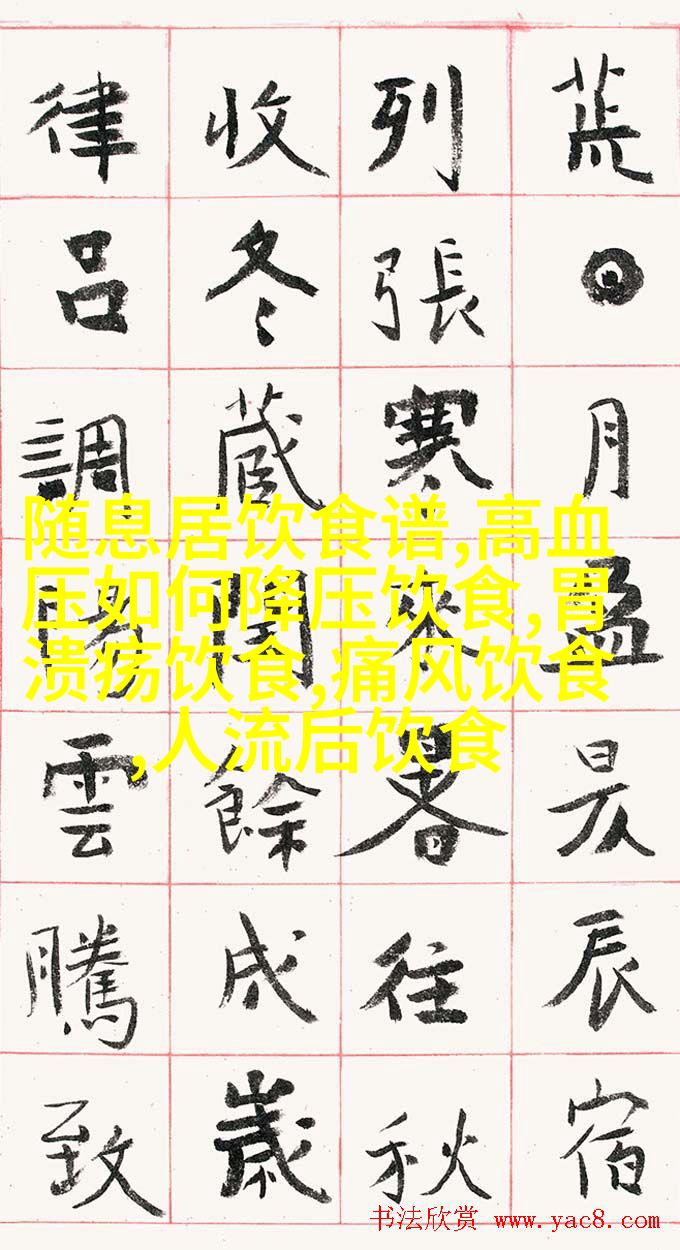 荒日月盈昃辰宿
列張寒來暑往秋
收冬藏閏餘成歲
律吕調陽雲騰致
随息居饮食谱,高血
压如何降压饮食,胃
溃疡饮食,痛风饮食
,人流后饮食
书法欣赏 www.yac8.com